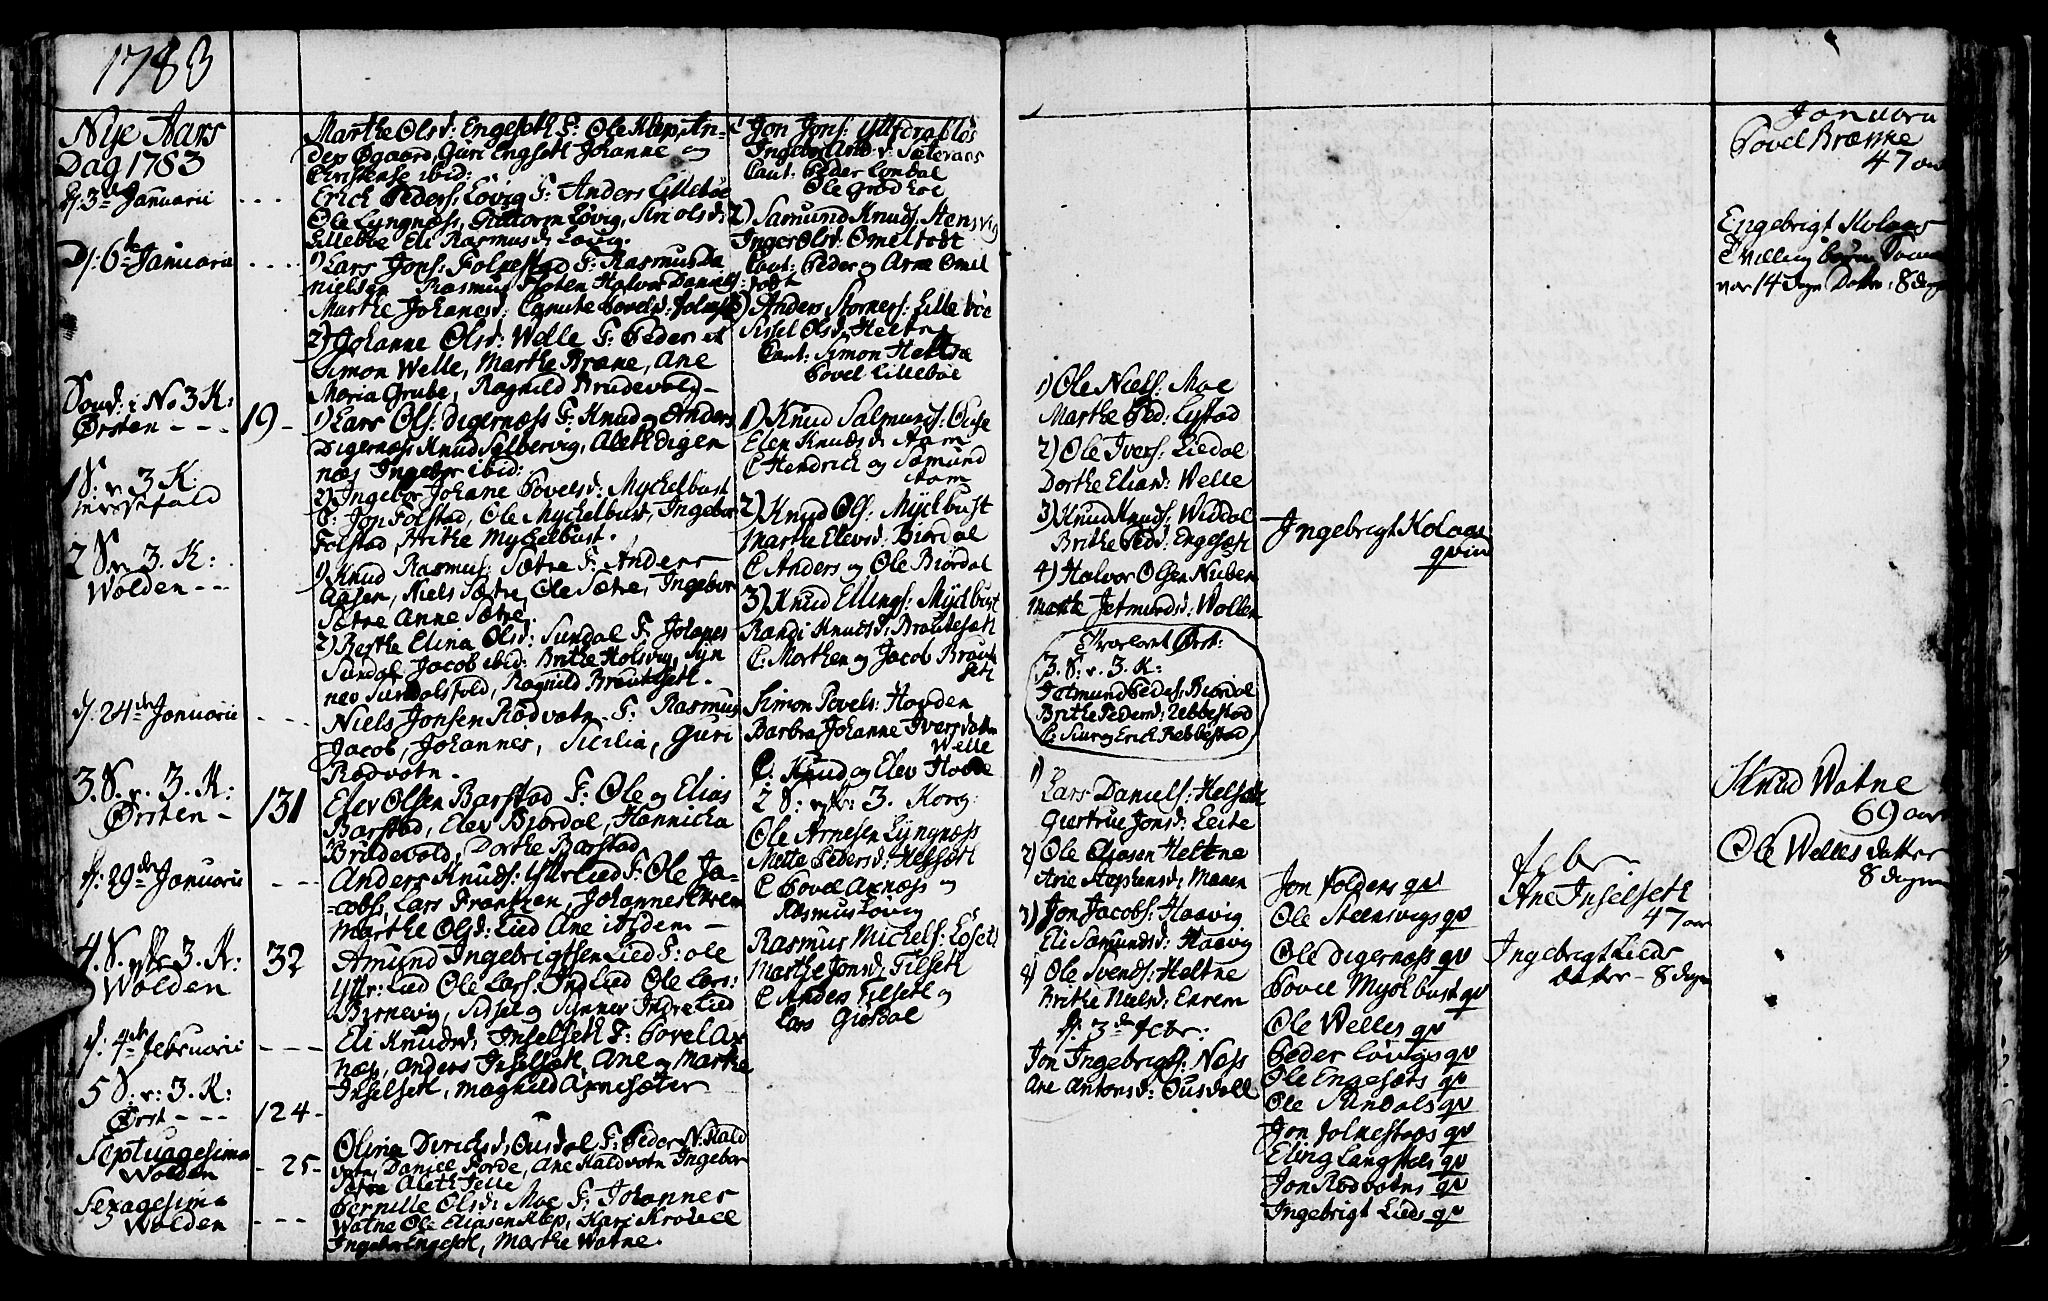 1783
Nye Aars
Dag 1783
d: 3de Januarii - - -
d: 6te Januarii - - -
Sønd: i No 3 K:
Ørsten - - - 19 -
1 S: v. 3 K:
2 S. v. 3. K:
Wolden - - -
d: 24de Januarii - - -
3. S. v. 3. K:
Ørsten - 131
d: 29de Januarii - - -
4. S. 3. K: 32
Wolden
d: 4de februarii - - -
5 S: v: 3. K:
Ørst - - - 124 -
Septuagesima
Wolden - 25 -
Sexagesima
Wolden - - -
Marthe Olsd: Engeseth F: Ole Klep, An-
ders Øgaard, Guri Engseth Johanne og
Christense ibid:
Erich Peders: Løvig F: Anders Lillebøe
Ole Lyngnæss, Guttorm Løvig, Siri Olsd:
Lillebøe Eli Rasmusd: Løvig.
1) Lars Jons: Folkestad F: Rasmus Da
nielsen Rasmus Floten Halvor Daniels:
Marthe Johanesd:
2) Johanne Olsd: Welle F: Peder et
Simon Welle, Marthe Brune, Ane
Maria Grube, Ragnild Brudevold -
1) Lars Ols: Digernæss F: Knud og Anders
Digernæss Knud Sølbervig, Aleth Diger
næs Ingebor ibid:
2) Ingebor Johane Povelsd: Myckelbust
F: Jon Folstad, Ole Myckelbust, Ingebor
Folstad, Brithe Myckelbust.
1) Knud Rasmus: Sætre F: Anders
Aasen, Niels Sætre, Ole Sætre, Ingebor
Sætre Anne Sætre.
2) Berthe Elina Olsd: Sundal F: Johanes
Sundal Jacob ibid: Brithe Holsvig, Syn
nev Sundalsfold, Ragnild Brauteseth.
Niels Jonsen Rødvatn F: Rasmus
Jacob, Johannes, Sicilia, Guri
Rødvatn.
Elev Olsen Barstad F: Ole og Elias
Barstad, Elev Biørdal, Hannicka
Brudevold, Dorthe Barstad
Anders Knuds: Yttrelied F: Ole Ja-
cobs, Lars Frantzen, Johannes
Marthe Olsd: Lied Ane itidem -
Amund Ingebrigtsen Lied F: Ole
Yttr: Lied Ole Lars: Ind Lied Ole Lars:
Biørnevig, Sidsel og Synnev Indre Lied
Eli Knudsd: Inselseth F: Povel Ax
næs, Anders Inselseth, Ane og Marthe
Inselseth, Magnild Axnesæter
Olina Dirichsd: Ousdal F: Peder N: Hald
vatn, Daniel Førde, Ane Haldvatn Ingebor
Aleth Felle
Pernille Olsd: Moe F: Johannes
Watne Ole Eliasen Klep, Kari Krøvel
Ingebor Engeseth, Marthe Watne.
1 Jon Jons: Yttredrabløs
Caut: Peder Lombal
2) Samund Knuds: Stensvig
Inger Olsd: Omelfodt
Caut: Peder og Arne Omel
fodt
3) Anders Storners: Lillebøe
Sissel Olsd: Heltne
Caut: Simon Heltne
Povel Lillebøe
1) Knud Salmunds: Ouse
Elen Knudsd: Aam
C Hendrich og Samund
Aam
2) Knud Ols: Myckbust
Marthe Elevsd: Biørdal
C Anders og Ole Biørdal
3) Knud Ellings: Myckbust
Randi Knudsd: Brauteseth
C: Morthen og Jacob Braut
seth
Simon Povels: Hovden
Barbra Johanne Iversdatter
Welle
C: Knud og Elev Hovde
2 S: 3. Kong:
Ole Arnesen Lyngnæss
Mette Pedersd: Helseth
C Povel Axnæss og
Rasmus Løvig
Rasmus Michels: Løseth
Marthe Jonsd: Filseth
C Anders Filseth og
Lars Giersdal
1) Ole Niels: Moe
Marthe Ped: Lystad
2) Ole Ivers: Liedal
Dorthe Eliasd: Welle
3) Knud Knuds: Widdal
Brithe Pedsd: Engesæt
4) Halvor Olsen
Marthe Jetmundsd: Wollen
Trolovet Ørst:
3. S. v. 3. K:
Jetmund Peders: Biørdal
Brithe Pedersd: Rebbestad
C: Siur og Erich Rebbestad
1) Lars Daniels: Helseth
Giertrue Jonsd: Leite
2) Ole Eliasen Heltne
Ane Stephensd: Maaen
3) Jon Jacobs: Haavig
Eli Samundsd: Haavig
4) Ole Svends: Heltne
Brithe Nielsd: Eurem
d: 3de febr:
Jon Ingebrigts: Næss
Ane Antonsd: Ousdall
Ingebrigt Kolaas
qvin
Jon foldens qv
Ole Steensvigs qv
Ole Digernæss qv
Povel Myckbust qv
Ole Welles qv
Peder Løvigs qv
Ole Engesæts qv
Ole Sundals qv
Jon Folkestads qv
Eling Langstøls qv
Jon Rødvatns qv
Ingebrigt Lieds qv
febr
Ane Inselseth
47 aar
Ingebrigt Lieds
datter - 8 dage
Januarii
Povel Brække
47 aar
Engebrigt Kolaas
Tvilling børn
var 14 dage Datter: 8 dage
Knud Watne
69 aar
Ole Welles datter
8 dage